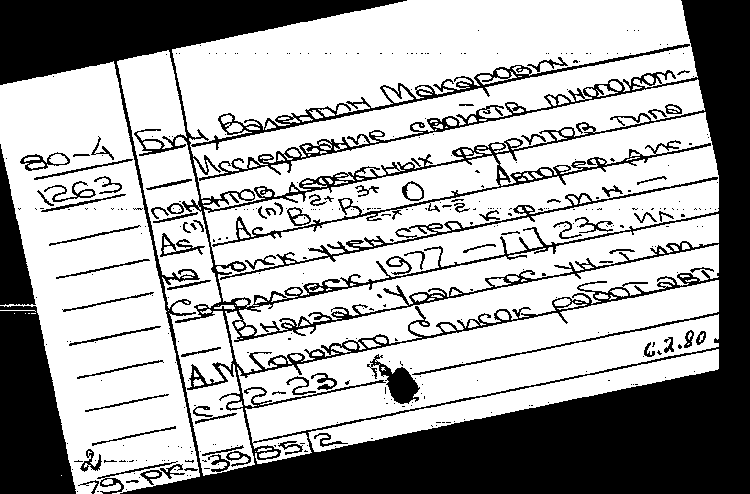 80-4
1263
Бич, Валентин Макарович.
Исследование свойств многоком-
понентов дефектных ферритов типа
As₁⁽ᴵ⁾...Asₙ⁽ⁿ⁾Bₓ²⁺B₂₋ₓ³⁺O : Автореф. дис.
на соиск. учен. степ. к.ф.-м.н. —
Свердловск, 1977 — [1], 23с., ил.
В надзаг.: Урал. гос. ун-т им.
А.М. Горького. Список работ авт.
с. 22-23.
6.2.80.
2
79-РК-3985/2